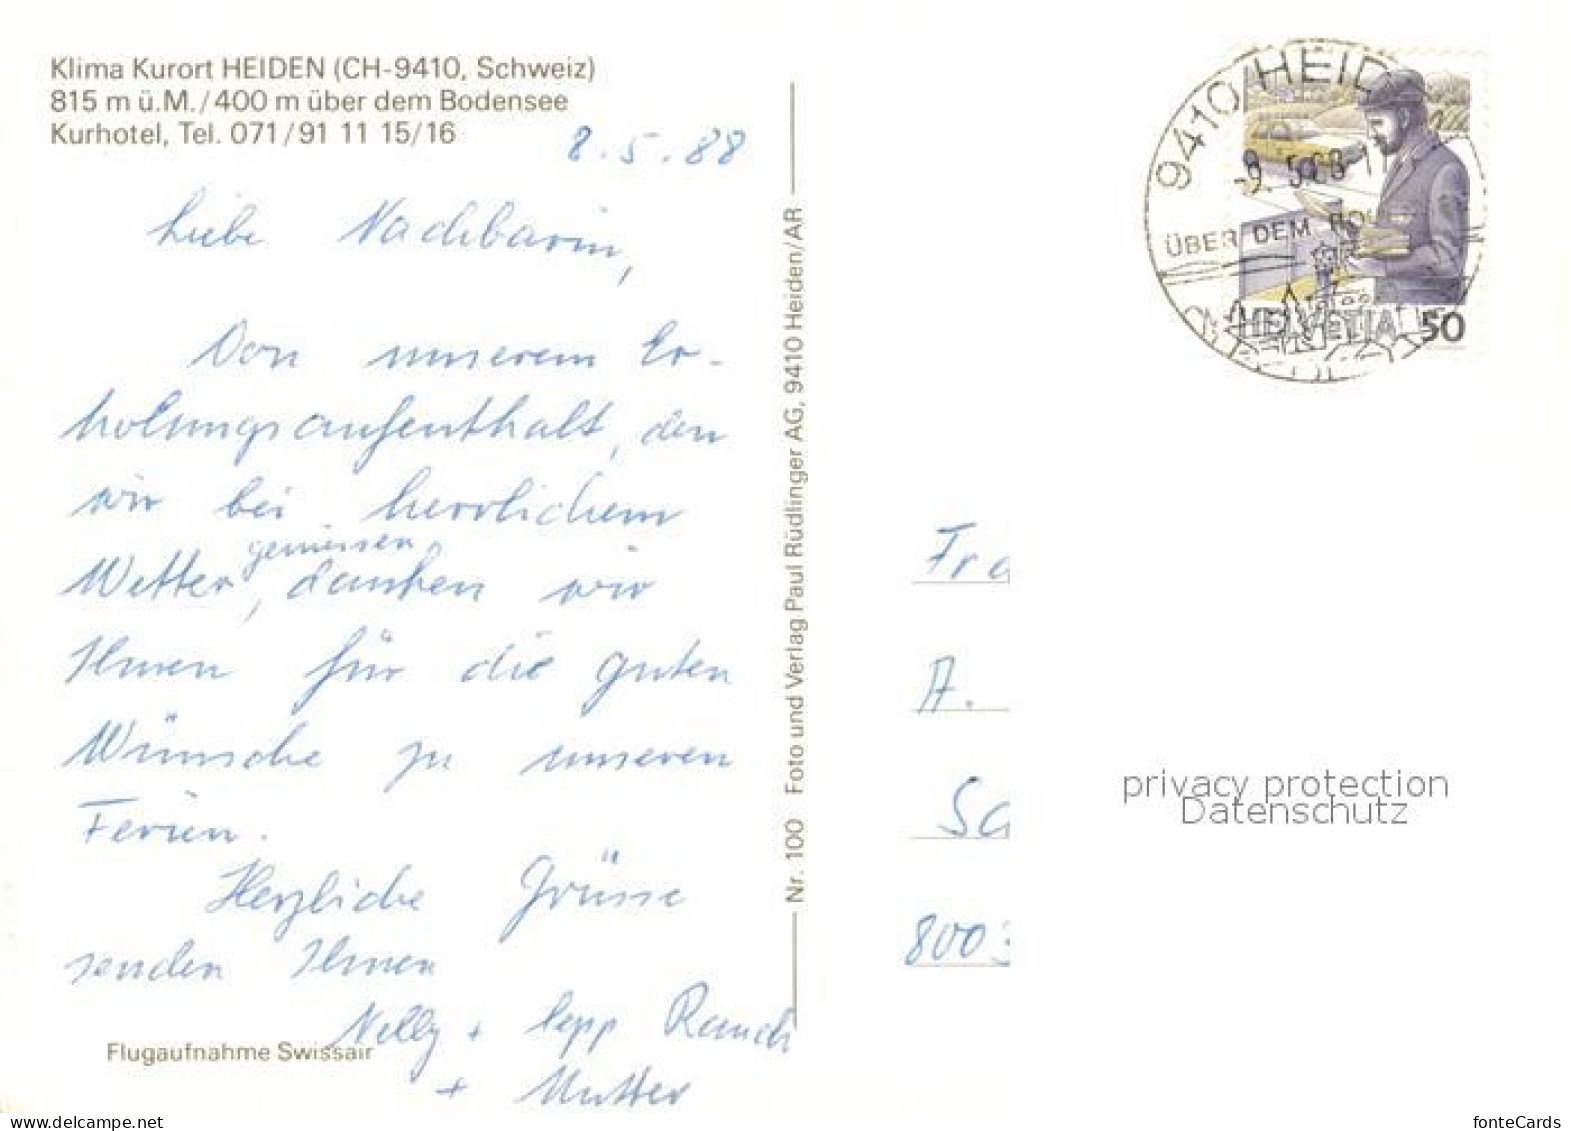 Klima Kurort HEIDEN (CH-9410, Schweiz)
815 m ü.M./400 m über dem Bodensee
Kurhotel, Tel. 071/91 11 15/16
8.5.88
Liebe Nachbarin,
Von unserem Er-
holungsaufenthalt, den
wir bei herrlichem
geniessen
Wetter, danken wir
Ihnen für die guten
Wünsche zu unseren
Ferien.
Herzliche Grüsse
senden Ihnen
Nelly + Sepp Rauch
+ Mutter
Flugaufnahme Swissair
Nr. 100 Foto und Verlag Paul Rüdlinger AG, 9410 Heiden/AR
9410 HEID
-9. 5.88
ÜBER DEM BO
HELVETIA 50
Fra
A.
Sc
800
privacy protection
Datenschutz
www.delcampe.net
fonteCards